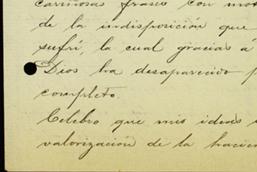 cariñosas frases con mot
de la indisposición que
sufrí, la cual gracias á
Dios ha desaparecido p
completo.
Celebro que mis ideas
valorización de la hacien